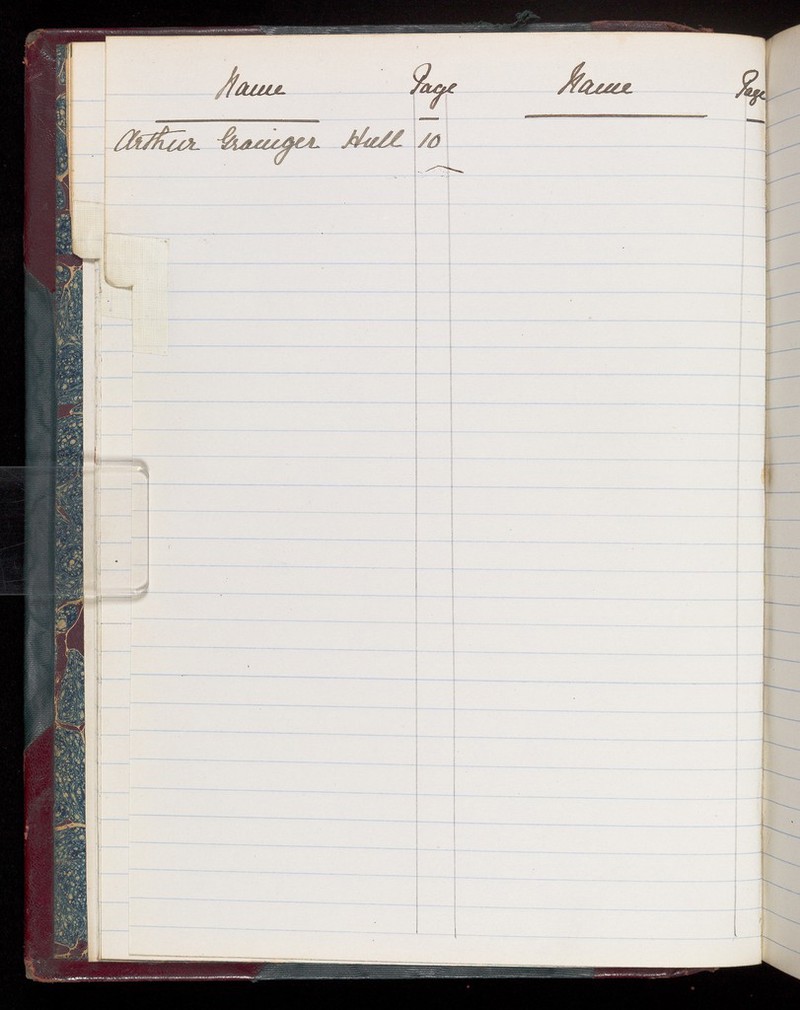 Name Page Name Page
Arthur Grainger Hull 10